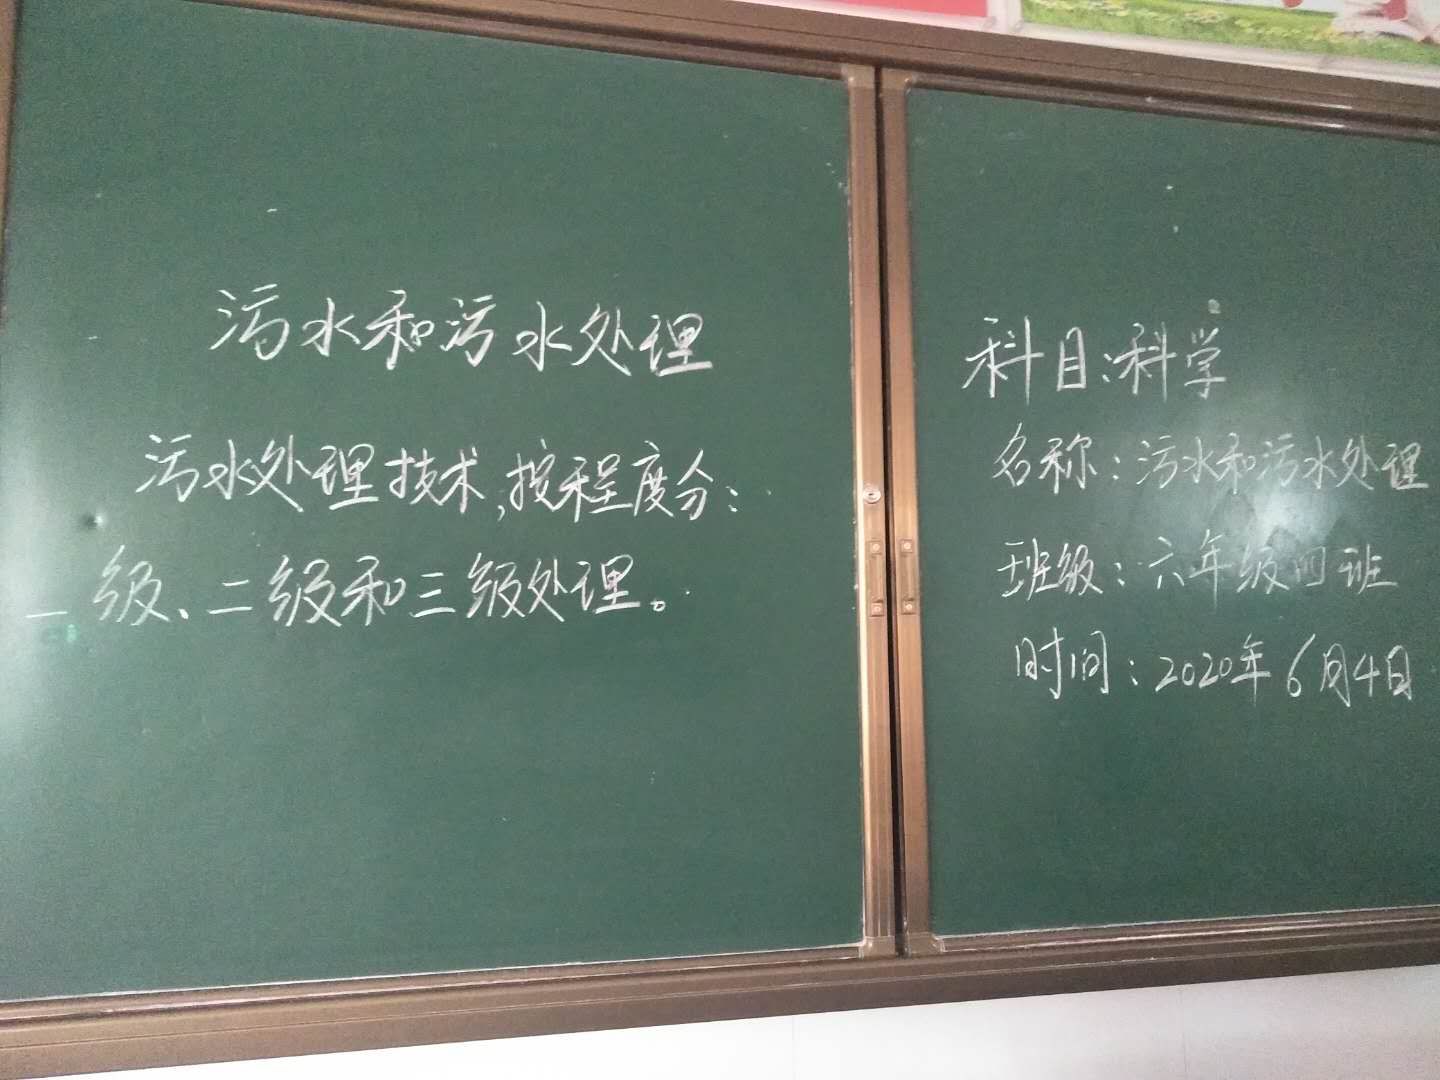 污水和污水处理
污水处理技术,按程度分:
一级、二级和三级处理。
科目:科学
名称:污水和污水处理
班级:六年级四班
时间:2020年6月4日